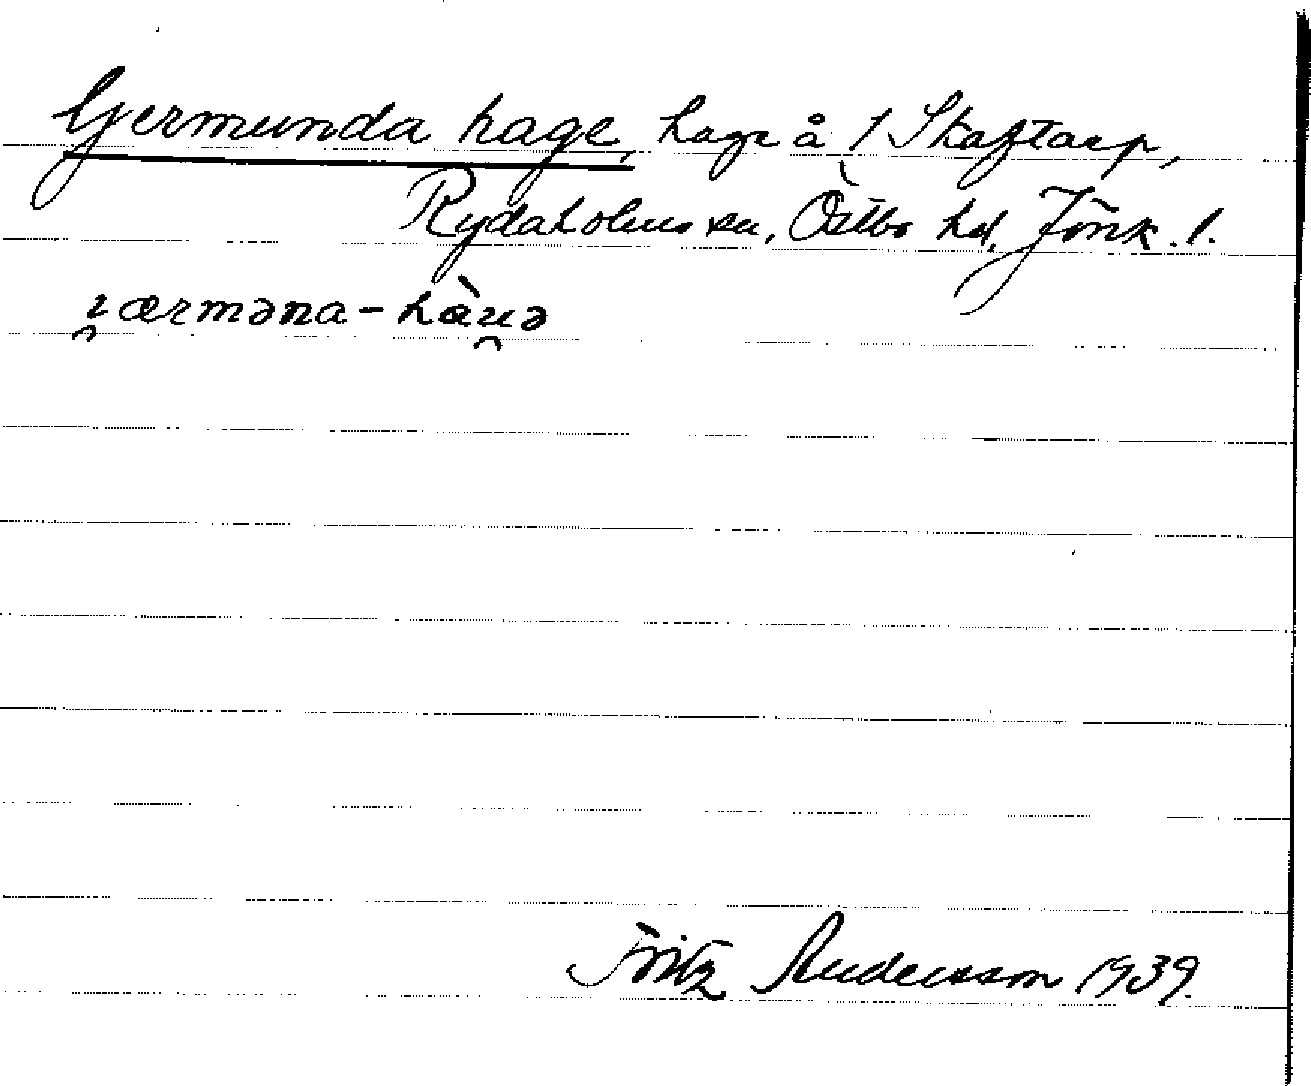 Germunda hage, hage å 1 Skaftarp,
Rydaholms sn, Östbo hd, Jönk. l.
i̯ærməna-hàu̯ə
Fritz Andersson 1939.